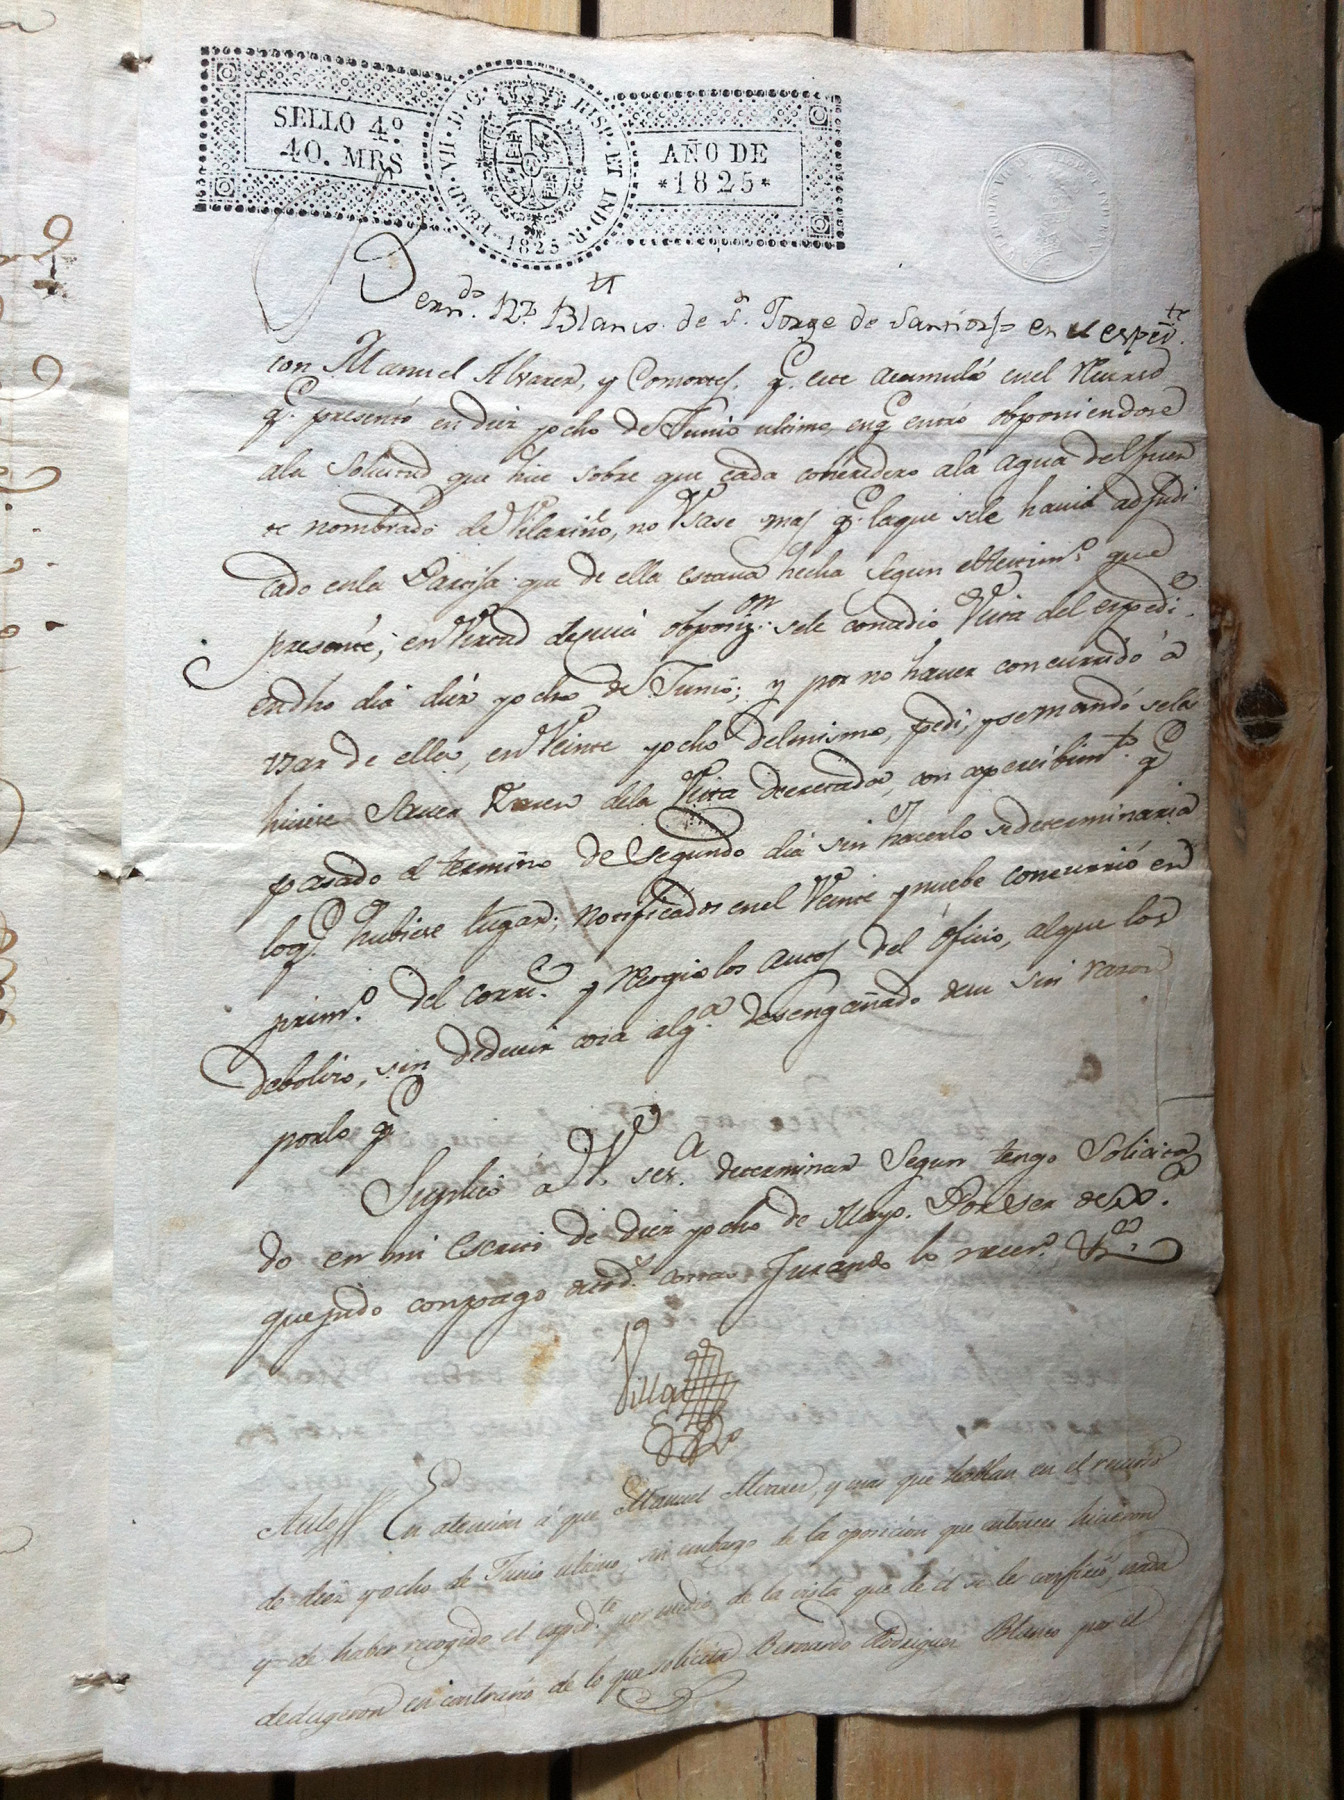 SELLO 4.º
40. MRS
FERD. VII. D. G. HISP. ET IND. R.
1825
AÑO DE
*1825*
Bern.do Rz. Blanco de S.n Jorge de en el exped.te
con Manuel Alvarez, y Consortes, q.e este acumuló en el Recurso
q.e presentó en diez y ocho de Junio ultimo, en q.e entró obponiendose
ala solicitud que hice sobre que cada coheredero ala agua del fuen
te nombrado de Vilariño, no Usase mas q.e laque sele havia adjudi
cado enla Partija que de ella estava hecha segun el testim.o que
presenté; en Virtud desuia obposiz.on sele confirió Vista del exped.te
endho dia diez y ocho de Junio; y por no haver concurrido á
Usar de ella, en Veinte y ocho delmismo, pedi, y se mandó seles
hiciese saver Usasen dela Vista decretada, con apercibim.to q.e
pasado el termino de segundo dia sin hacerlo se determinaria
loq.e hubiese lugar; Notificados en el Veinte y nuebe concurrió en
prim.o del corr.e y Recogió los autos del oficio, alque los
debolvio, sin deducir cosa alg.a desengañado desu sin razon
porlo q.e
Suplico á V. ser.a determinar segun tengo Solicita
do en mi escrito de diez y ocho de Mayo. Por ser de
que pido con pago decostas Jurando lo necer.o &.ca
Villar
Auto En atencion á que Manuel Alvarez, y mas que hablan en el recurso
de diez y ocho de Junio ultimo, sin embargo de la oposicion que entonces hicieron
y de haber recogido el exped.te por medio de la vista que de él se les confirió, nada
dedugeron en contrario de lo que solicita Bernardo Rodriguez Blanco por el